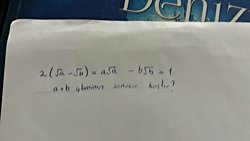 Deniz
2(√a - √b) = a√a - b√b = 1
a+b işleminin sonucu kaçtır?